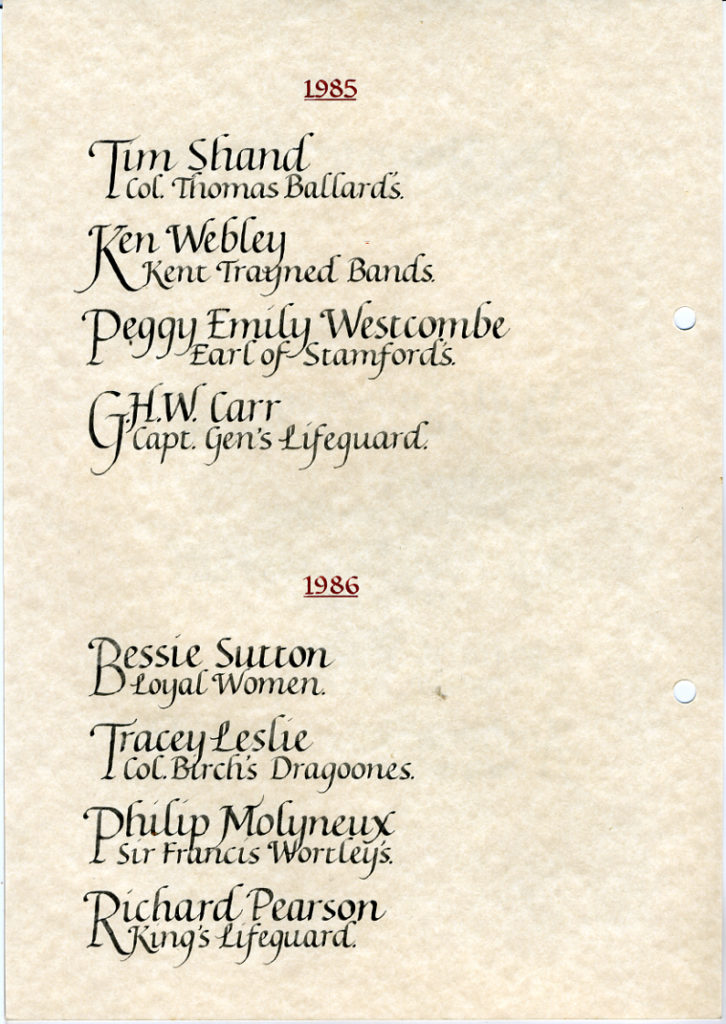 1985
Tim Shand
Col. Thomas Ballard's.
Ken Webley
Kent Trayned Bands.
Peggy Emily Westcombe
Earl of Stamford's.
G.H.W. Carr
Capt. Gen's Lifeguard.
1986
Bessie Sutton
Loyal Women.
Tracey Leslie
Col. Birch's Dragoones.
Philip Molyneux
Sir Francis Wortley's.
Richard Pearson
King's Lifeguard.